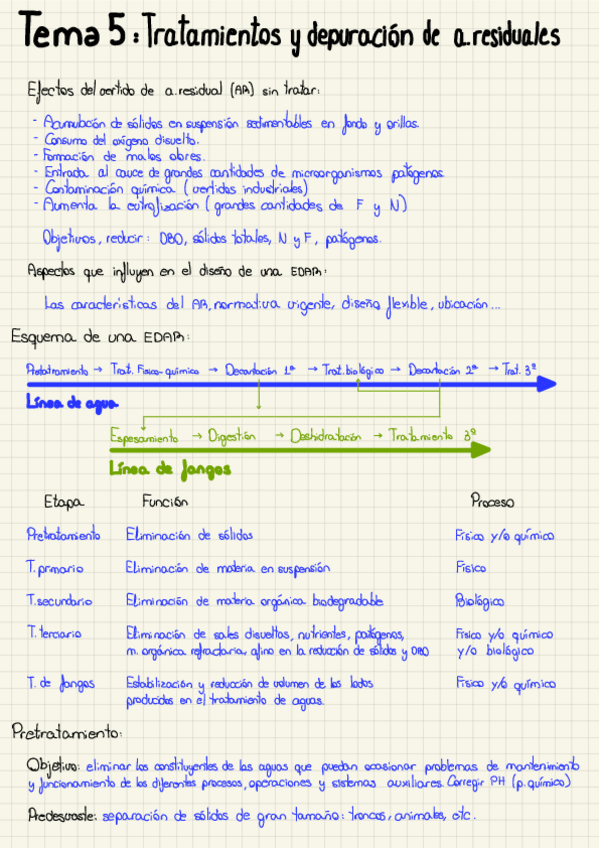 Tema 5: Tratamientos y depuración de a.residuales
Efectos del vertido de a.residual (AR) sin tratar:
- Acumulación de sólidos en suspensión sedimentables en fondo y orillas.
- Consumo del oxígeno disuelto.
- Formación de malos olores.
- Entrada al cauce de grandes cantidades de microorganismos patógenos
- Contaminación química (vertidos industriales)
- Aumenta la eutrofización (grandes cantidades de F y N)
Objetivos, reducir: DBO, sólidos totales, N y F, patógenos.
Aspectos que influyen en el diseño de una EDAR:
Las características del AR, normativa vigente, diseño flexible, ubicación...
Esquema de una EDAR:
Pretratamiento → Trat. Físico-químico → Decantación 1ª → Trat. biológico → Decantación 2ª → Trat. 3º
Línea de agua
Espesamiento → Digestión → Deshidratación → Tratamiento 3º
Línea de fangos
Etapa Función Proceso
Pretratamiento Eliminación de sólidos Físico y/o químico
T. primario Eliminación de materia en suspensión Físico
T. secundario Eliminación de materia orgánica biodegradable Biológico
T. terciario Eliminación de sales disueltas, nutrientes, patógenos, Físico y/o químico
m. orgánica refractaria, afino en la reducción de sólidos y DBO y/o biológico
T. de fangos Estabilización y reducción de volumen de los lodos Físico y/o químico
producidos en el tratamiento de aguas.
Pretratamiento:
Objetivo: eliminar los constituyentes de las aguas que puedan ocasionar problemas de mantenimiento
y funcionamiento de los diferentes procesos, operaciones y sistemas auxiliares. Corregir PH (p. químico)
Predesbaste: separación de sólidos de gran tamaño: troncos, animales, etc.